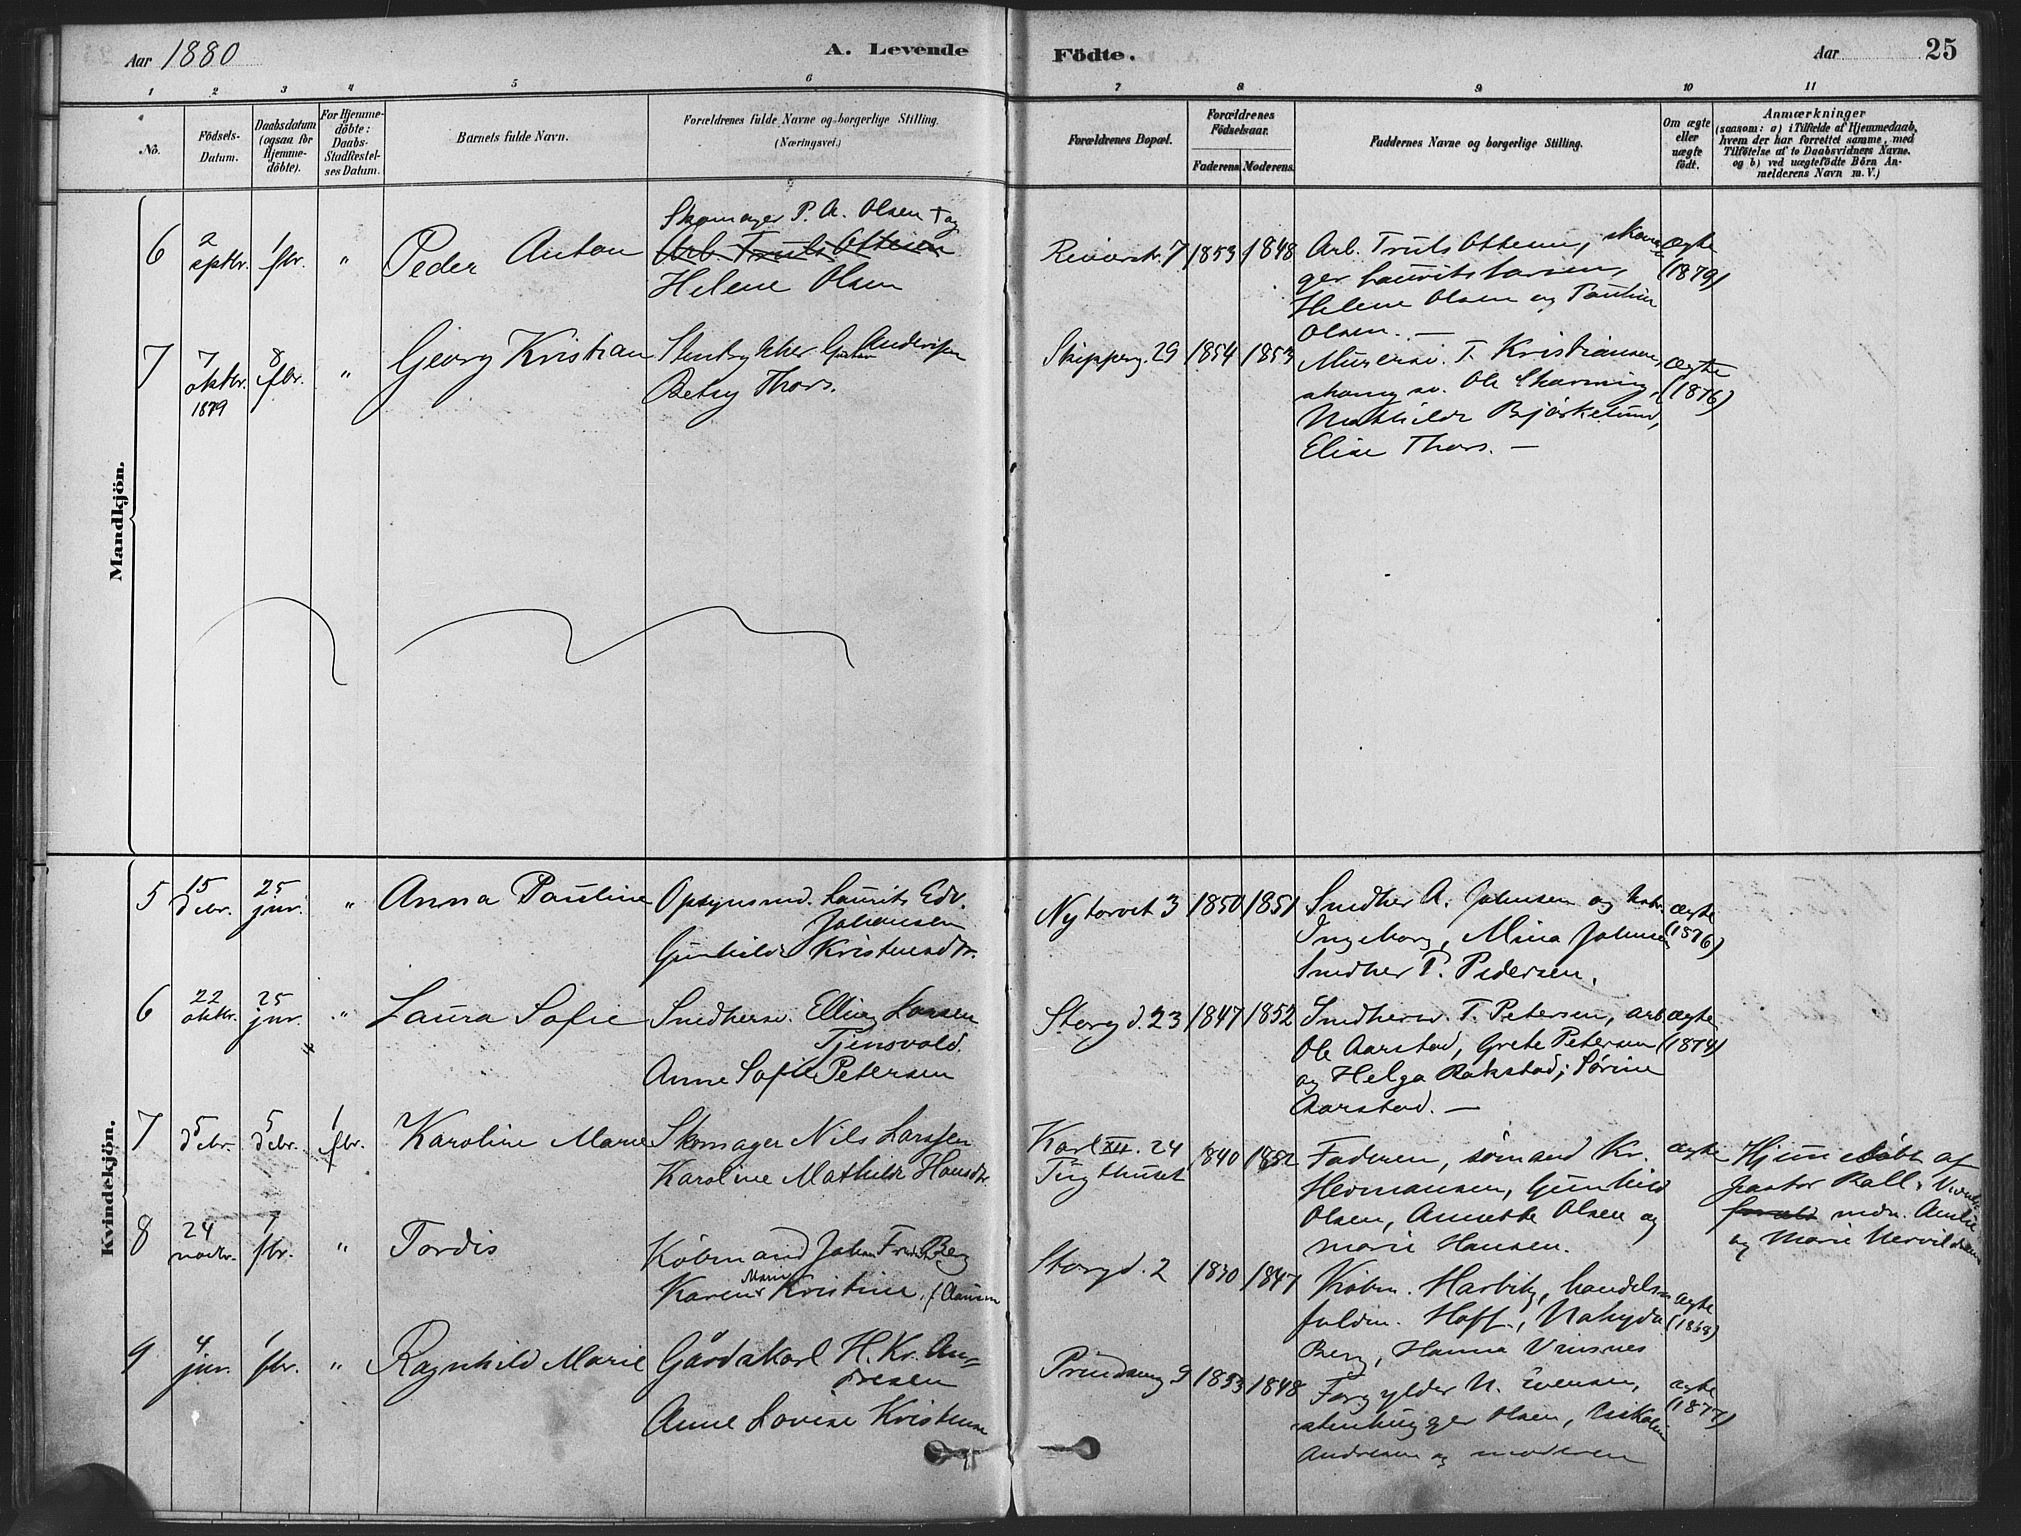 Aar 1880
A. Levende
Födte.
Aar
25
1 2 3 4 5 6 7 8 9 10 11
No.
Födsels-
Datum.
Daabsdatum
(ogsaa for
Hjemme-
döbte).
For Hjemme-
döbte:
Daabs-
Stadfæstel-
ses Datum.
Barnets fulde Navn.
Forældrenes fulde Navne og borgerlige Stilling.
(Næringsvei.)
Forældrenes Bopæl.
Forældrenes
Födselsaar.
Faderens Moderens
Faddernes Navne og borgerlige Stilling.
Om ægte
eller
uægte
födt.
Anmærkninger
(saasom: a) i Tilfælde af Hjemmedaab,
hvem der har forrettet samme, med
Tilföielse af to Daabsvidners Navne.
og b) ved uægtefödte Börn An-
melderens Navn m. V.)
Mandkjön.
6
2
sptbr.
1
fbr.
"
Peder Anton
Skomager P. A. Olsen og
Arb. Truls Ottesen
Helene Olsen
7 1853 1848
Arb. Truls Ottesen, skoma
ger Laurits Larsen,
Helene Olsen og Pauline
Olsen. —
ægte
(1879)
7
7
oktbr.
1879
8
fbr.
"
Georg Kristian
Andersen
Betsy Thors.
Skipperg. 29 1854 1853
T. Kristiansen,
Ole
Mathilde Bjørkelund,
Elise Thors. —
ægte
(1876)
Kvindekjön.
5
15
debr.
25
jnr.
"
Anna Pauline
Opsynsmd. Laurits Edv.
Johansen
Gunhild Kristensdtr.
Nytorvet 3 1850 1851
Smedker A. Johnsen og
Ingeborg, Mina Johnsen
Smedker P. Pedersen.
ægte
(1876)
6
22
oktbr.
25
jnr.
"
Laura Sofie
Smedkersv. Elling Larsen
Tjensvold.
Anne Sofie Petersen
Storgd. 23 1847 1852
Smedkersv. T. Petersen, arb
Ole Aarstad, Grete Petersen
og Helga Rakstad; Sørine
Aarstad. —
ægte
(1874)
7
5
debr.
5
debr.
1
fbr.
Karoline Marie
Skomager Nils Larssen
Karoline Mathilde Hansdtr.
Karl XII. 24
Tugthuset
1840 1852
Faderen, sømand Kr.
Hermansen, Gunhild
Olsen, Annette Olsen og
Marie Hansen.
ægte
Hjemmedøbt af
pastor Rall.
mdm.
og Marie
8
24
novbr.
1
fbr.
"
Tordis
Købmand Johan Berg
Karen Marie Kristine, f. Clausen
Storgd. 2 1830 1847
Købm. Harbitz, handels
fuldm. Hoff,
Berg, Hanna Vinsnes
ægte
9
4
jnr.
1
fbr.
"
Ragnhild Marie
Gårdskarl H. Kr. An-
dresen
Anne Lovise Kristensen
Prindseng 9 1853 1848
Forgylder N. Evensen,
stenhugger Olsen,
Andresen og moderen
ægte
(1877)